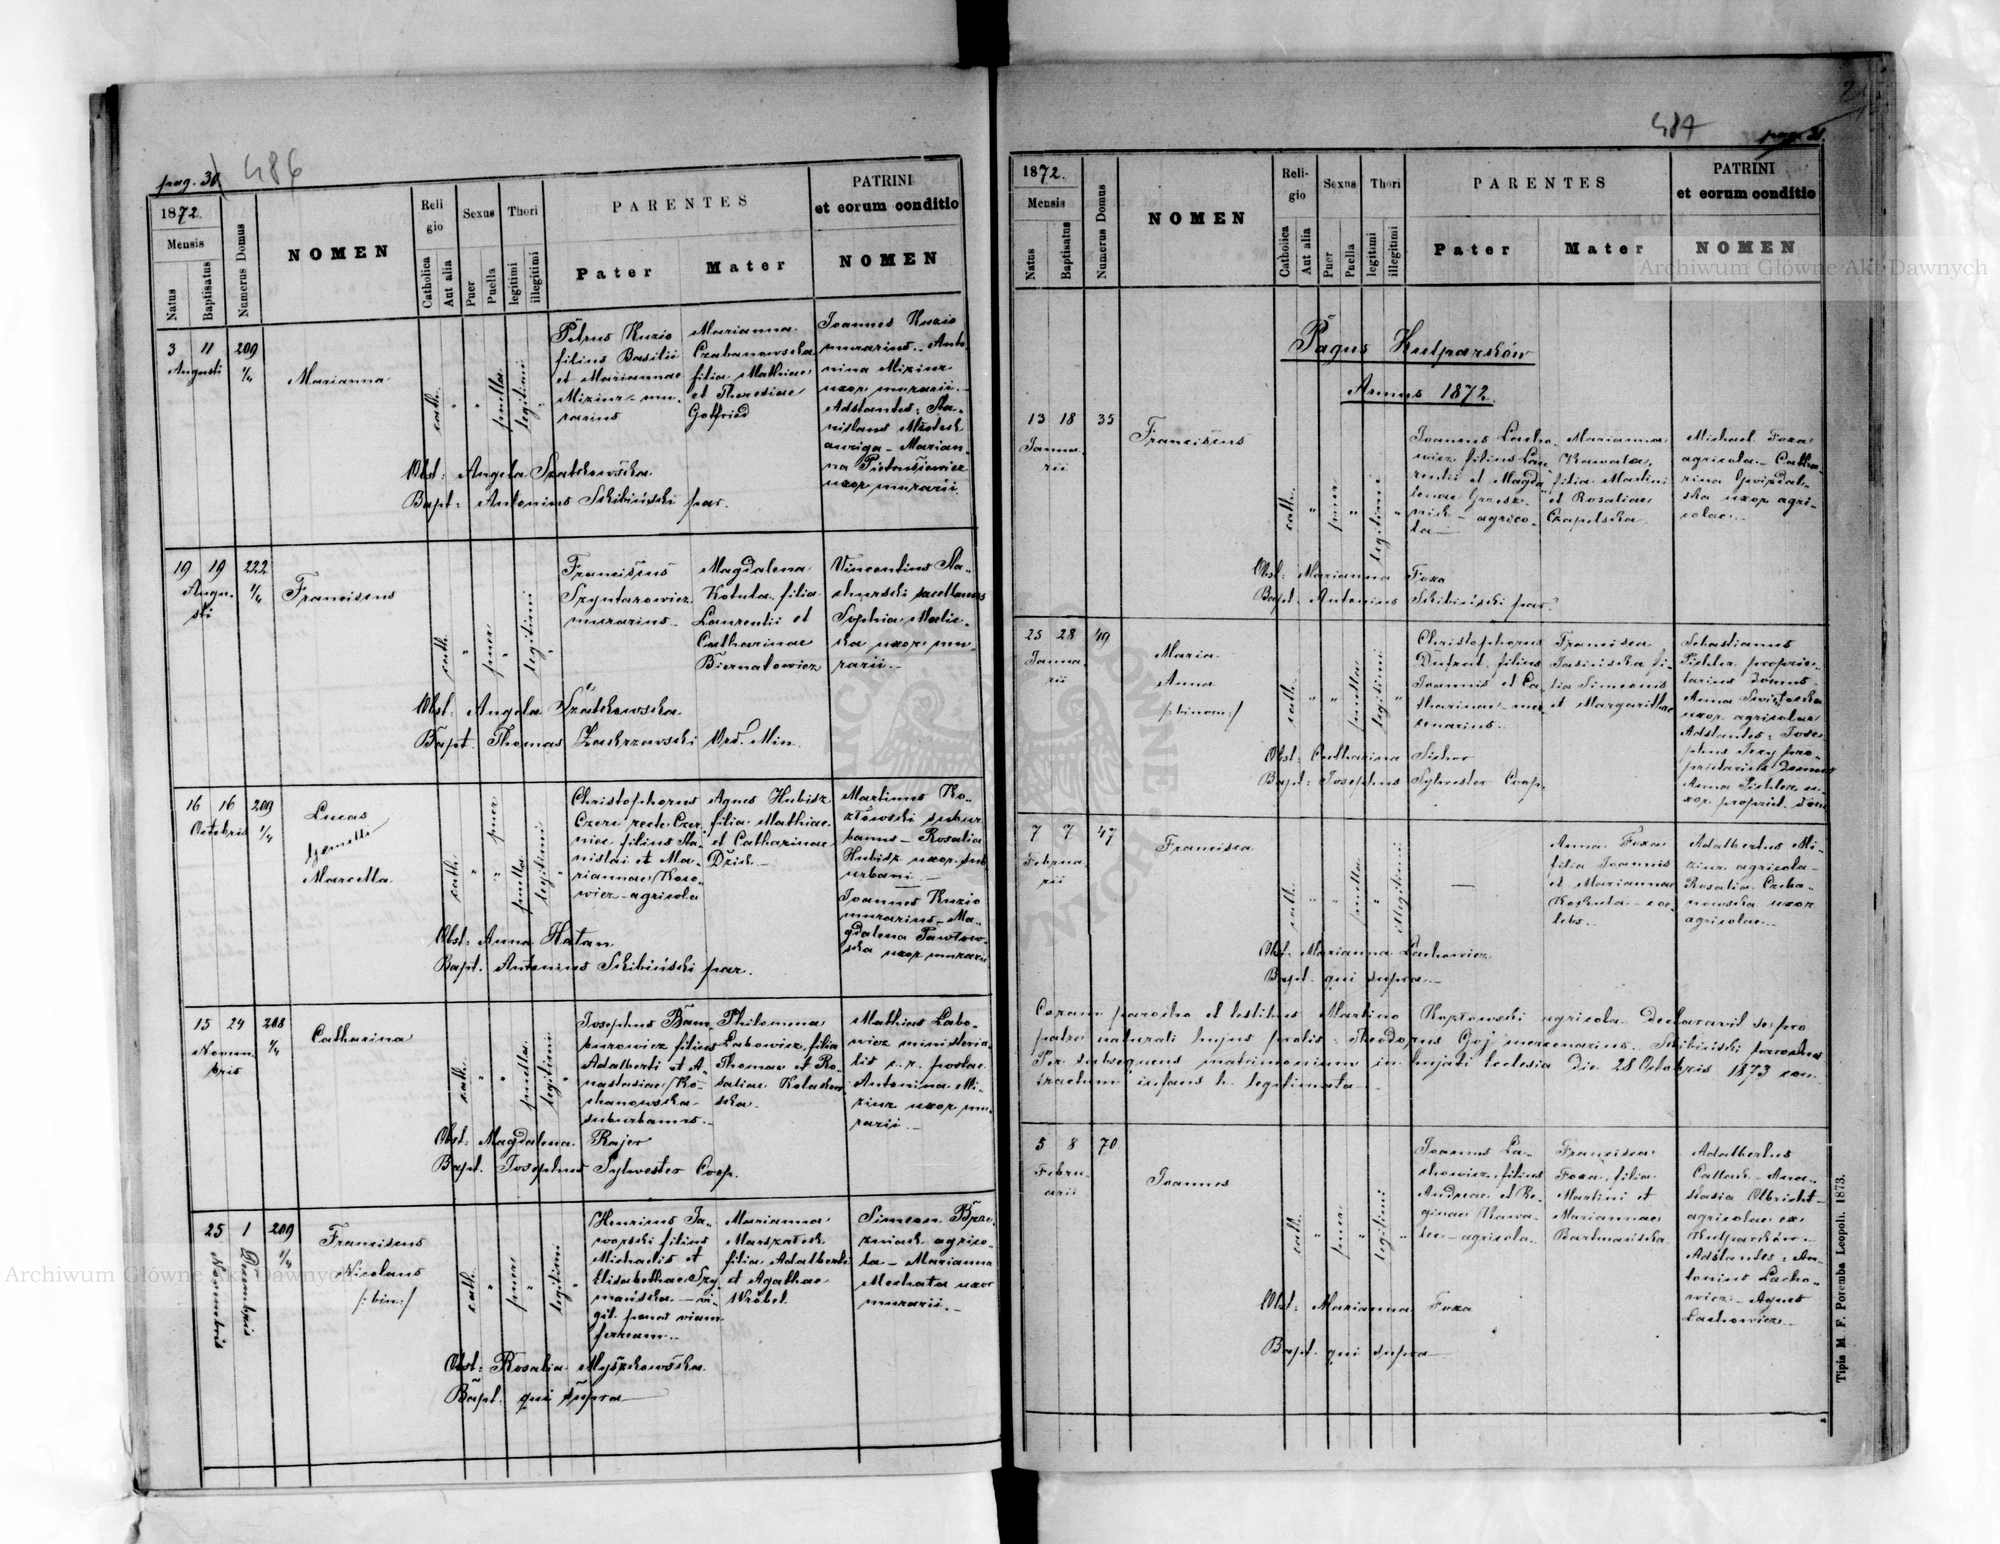 pag. 30 486
1872.
Mensis
Natus
Baptisatus
Numerus Domus
NOMEN
Religio
Catholica
Aut alia
Sexus
Puer
Puella
Thori
legitimi
illegitimi
PARENTES
Pater
Mater
PATRINI
et eorum conditio
NOMEN
3 11 209 1/4
Augusti
Marianna
cath.
puella
legitimi
Petrus Kuzio
filius Basilii
et Mariannae
Miziur - mu-
rarius
Marianna
Czabanowska
filia Mathiae
et Theresiae
Gotfried
Joannes Kuzio
murarius - Anto-
nina Miziur
uxor murarii. -
Adstantes: Sta-
nislaus
auriga - Marian-
na Pietrusiewicz
uxor murarii.
Obst: Angela Szatkowska
Bapt: Antonius Skibiński par.
19 19 222 1/4
Augu-
sti
Franciscus
cath.
puer
legitimi
Franciscus
Szyntarowicz
murarius -
Magdalena
Kotula filia
Laurentii et
Catharinae
Biernatowicz
Vincentius Sta-
churski sacellanus
Sophia Malic-
ka uxor mu-
rarii. -
Obst: Angela Szatkowska
Bapt. Thomas Zakrzewski Ord. Min.
16 16 209 1/4
Octobris
Lucas
Gemelli
Marcella
cath.
puer
puella
legitimi
Christophorus
Czerc recte Czer-
niec filius Sta-
nislai et Ma-
riannae Koso-
wicz - agricola
Agnes Hubisz
filia Mathiae
et Catharinae
Dzick -
Martinus Ko-
złowski subur-
banus - Rosalia
Hubisz uxor sub-
urbani -
Joannes Kuzio
murarius - Ma-
gdalena Pawłow-
ska uxor murarii
Obst: Anna Hatan
Bapt. Antonius Skibiński par.
15 24 208 1/4
Novem-
bris
Catharina
cath.
puella
legitimi
Josephus Bam-
burowicz filius
Adalberti et A-
nastasiae Ko-
chanowska
suburbanus -
Philomena
Labowicz filia
Thomae et Ro-
saliae Kolaków-
ska.
Mathias Labo-
wicz ministeria-
lis c. r. postae
Antonina Mi-
ziur uxor mu-
rarii -
Obst: Magdalena Rajer
Bapt. Josephus Sylwester Coop.
25 1 209 1/4
Novembris
Decembris
Franciscus
Nicolaus
/:bin:/
cath.
puer
legitimi
Henricus Ja-
worski filius
Michaelis et
Elisabethae Szy-
mańska - vi-
gil penes viam
ferream. -
Marianna
Marszałek
filia Adalberti
et Agathae
Wróbel.
Simeon Brze-
zniak agrico-
la - Marianna
Mechata uxor
murarii. -
Obst: Rosalia Myszkowska
Bapt. qui supra
487 pag. 31.
1872.
Mensis
Natus
Baptisatus
Numerus Domus
NOMEN
Religio
Catholica
Aut alia
Sexus
Puer
Puella
Thori
legitimi
illegitimi
PARENTES
Pater
Mater
PATRINI
et eorum conditio
NOMEN
Pagus Kulparków
Annus 1872.
13 18 35
Janua-
rii
Franciscus
cath.
puer
legitimi
Joannes Lacho-
wicz filius Lau-
rentii et Magda-
lenae Grzesz-
nich - agrico-
la -
Marianna
Kawalec,
filia Martini
et Rosaliae
Czapelska
Michael Foxa
agricola - Catha-
rina Gwizdal-
ska uxor agri-
colae -
Obst: Marianna Foxa
Bapt. Antonius Skibiński par.
25 28 49
Janua-
rii
Maria
Anna
/:binom:/
cath.
puella
legitimi
Christophorus
Dufrat filius
Joannis et Ca-
tharinae - mer-
cenarius.
Francisca
Jasińska fi-
lia Simeonis
et Margarithae
Sebastianus
Pichler proprie-
tarius domus
Anna Swiętoska
uxor agricolae
Adstantes: Jose-
phus Jexy pro-
prietarius Domus
Anna Pichler u-
xor propriet. dom
Obst: Catharina Sichor
Bapt: Josephus Sylwester Coop.
7 7 47
Februa-
rii
Francisca
cath.
puella
illegitimi
Anna Foxa
filia Joannis
et Mariannae
Koszuta - coe-
lebs.
Adalbertus Mi-
ziur agricola -
Rosalia Czeba-
nowska uxor
agricolae -
Obst: Marianna Lachowicz
Bapt. qui supra -
Coram parocho et testibus Martino Kozłowski agricola declaravit se pro
patre naturali hujus prolis: Theodorus Goj mercenarius. Skibiński parochus
Per subsequens matrimonium in hujati Ecclesia Die 28 Octobris 1873 con-
tractum infans h. legitimata -
5 8 70
Febru-
arii
Joannes
cath.
puer
legitimi
Joannes La-
chowicz filius
Andreae et Re-
ginae Kawa-
lec - agricola.
Francisca
Foxa filia
Martini et
Mariannae
Bartmańska
Adalbertus
Cattan - Ana-
stasia Olbricht -
agricolae ex
Kulparków. -
Adstantes: An-
tonius Lacho-
wicz - Agnes
Lachowicz -
Obst: Marianna Foxa
Bapt. qui supra
Tipis M. F. Poremba Leopoli. 1873.
Archiwum Główne Akt Dawnych
Archiwum Główne Akt Dawnych